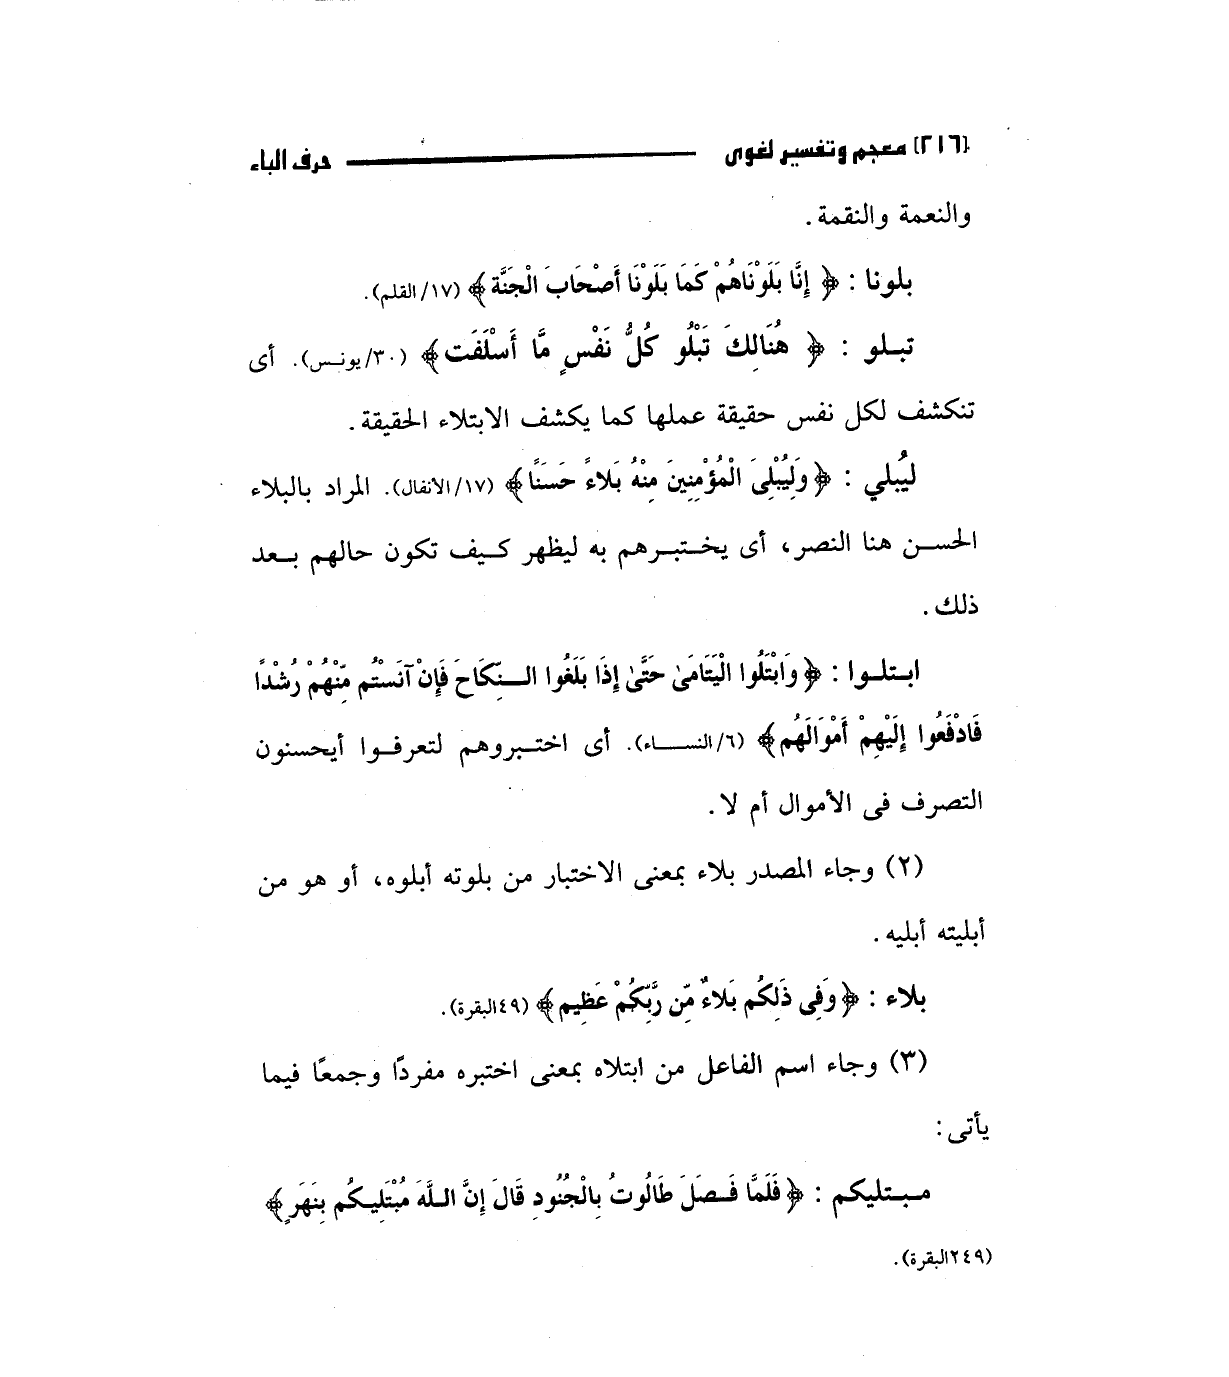 [٢١٦] معجم وتفسير لغوى حرف الباء
والنعمة والنقمة .
بلونا : ﴿ إِنَّا بَلَوْنَاهُمْ كَمَا بَلَوْنَا أَصْحَابَ الْجَنَّة ﴾ (١٧/القلم).
تبـلو : ﴿ هُنَالِكَ تَبْلُو كُلُّ نَفْسٍ مَّا أَسْلَفَت ﴾ (٣٠/يونـس). أى
تنكشف لكل نفس حقيقة عملها كما يكشف الابتلاء الحقيقة .
ليُبلي : ﴿ وَلِيُبْلِىَ الْمُؤْمِنِينَ مِنْهُ بَلاءً حَسَنًا ﴾ (١٧/الأنفال). المراد بالبلاء
الحســن هنا النصر، أى يخـتبـرهم به ليظهر كـيف تكون حالهم بـعد
ذلك .
ابـتلـوا : ﴿ وَابْتَلُوا الْيَتَامَىٰ حَتَّىٰ إِذَا بَلَغُوا الــنِّكَاحَ فَإِنْ آنَسْتُم مِّنْهُمْ رُشْدًا
فَادْفَعُوا إِلَيْهِمْ أَمْوَالَهُم ﴾ (٦/النســاء). أى اختـبروهم لتعرفـوا أيحسنون
التصرف فى الأموال أم لا .
(٢) وجاء المصدر بلاء بمعنى الاختبار من بلوته أبلوه، أو هو من
أبليته أبليه .
بلاء : ﴿ وَفِى ذَلِكُم بَلاءٌ مِّن رَّبِّكُمْ عَظِيم ﴾ (٤٩البقرة).
(٣) وجاء اسم الفاعل من ابتلاه بمعنى اختبره مفردًا وجمعًا فيما
يأتى :
مـبـتليكم : ﴿ فَلَمَّا فَـصَلَ طَالُوتُ بِالْجُنُودِ قَالَ إِنَّ اللَّهَ مُبْتَلِيـكُم بِنَهَرٍ ﴾
(٢٤٩البقرة).